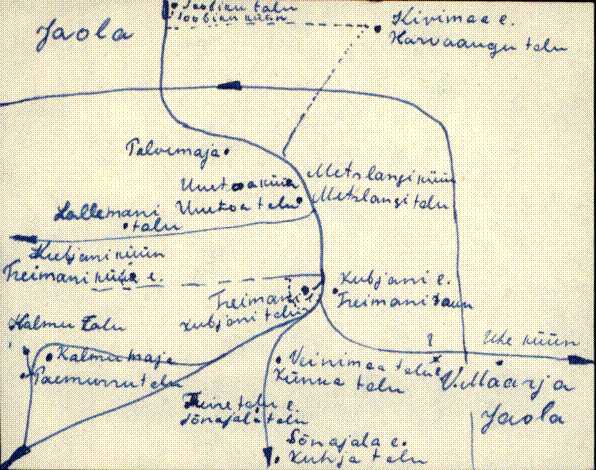 Soobiku talu
Soobiku küün
Jaola
Kivimaa e.
Harvaangu talu
Talvemaja
Metslangi küün
Metslangi talu
Uuetoa küün
Uuetoa talu
Lallemani
talu
Kubjani küün
Treimani küün e.
Kubjani e.
Treimani saun
Treimani
Kubjani talu
Kalmu talu
Kalmu maja
Paemurru talu
?
Uke küün
Veinimaa talu e.
Künka talu
Villaarja
Jaola
talu e.
Sõnajala talu
Sõnajala e.
Kuhja talu